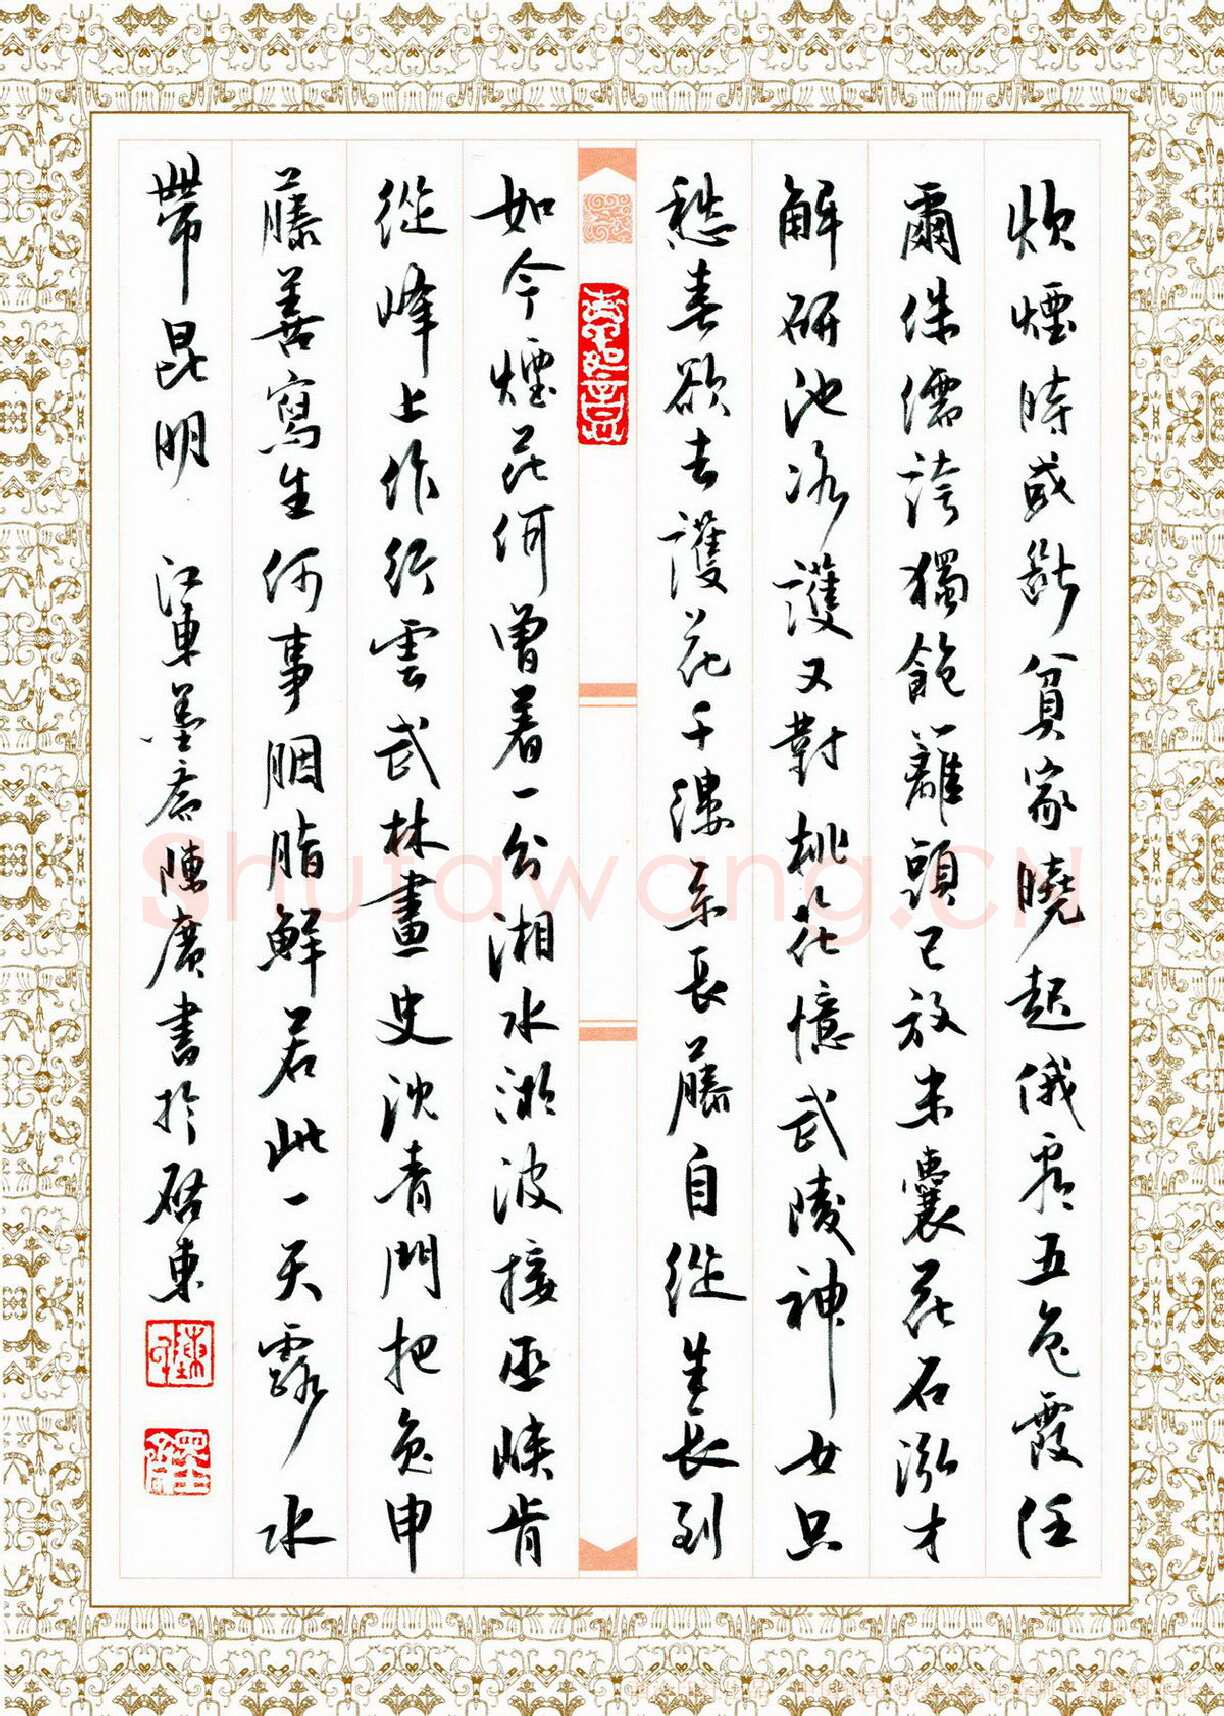 炊煙時或斷貧家曉起俄看五色霞任
爾侏儒誇獨飽籬頭已放米囊花石泓才
解研池凍護又對桃花憶武陵神女只
愁春欲去護花千縷系長藤自從生長到
如今煙花何曾着一分湘水漸波接巫峽肯
從峰上作行雲武林畫史沈青門把兔申
藤善寫生何事胭脂鮮若此一天露水
帶昆明 江東墨齋陳廣書於啟東
Shufawang.CN